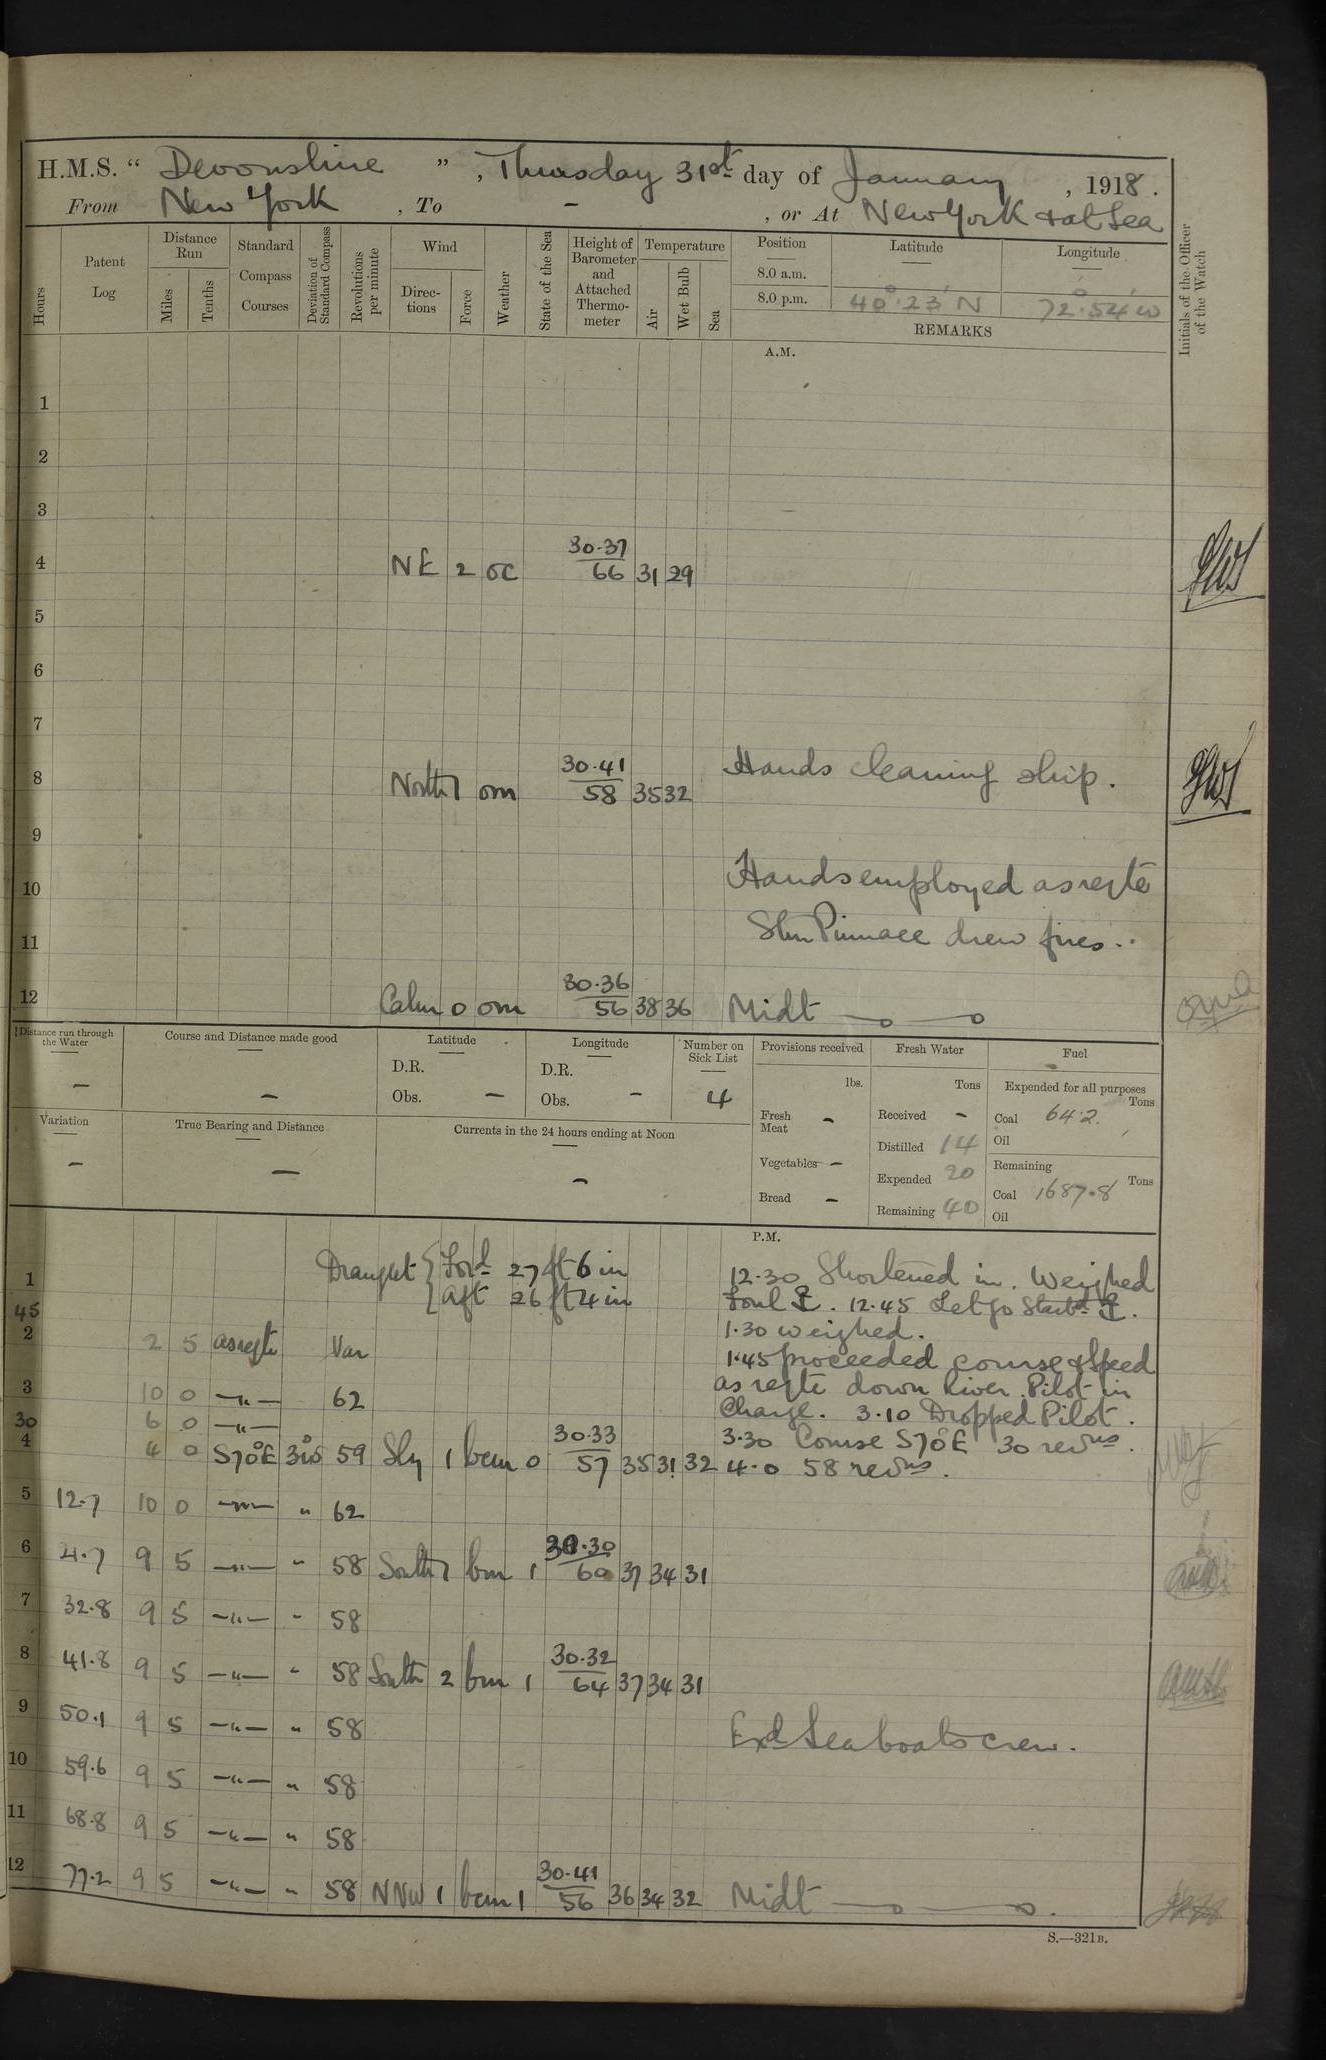 H.M.S. " Devonshire ", Thursday 31st day of January, 1918.
From New York, To -, or At New York & at Sea
Hours
Patent Log
Distance Run
Miles
Tenths
Standard Compass Courses
Deviation of Standard Compass
Revolutions per minute
Wind
Directions
Force
Weather
State of the Sea
Height of Barometer and Attached Thermometer
Temperature
Air
Wet Bulb
Sea
Position
Latitude
Longitude
Initials of the Officer of the Watch
8.0 a.m.
8.0 p.m. 40° 23' N 72° 54 W
REMARKS
A.M.
1
2
3
4 NE 2 oc 30.37 66 31 29
5
6
7
8 North 1 om 30.41 58 35 32 Hands cleaning ship.
9
10 Hands employed as reqte
11 Stm Pinnace drew fires.
12 Calm 0 om 30.36 56 38 36 Midt
Distance run through the Water -
Course and Distance made good -
Latitude
D.R.
Obs. -
Longitude
D.R.
Obs. -
Number on Sick List
4
Provisions received
lbs.
Fresh Meat -
Vegetables -
Bread -
Fresh Water
Tons
Received -
Distilled 14
Expended 20
Remaining 40
Fuel
Expended for all purposes
Tons
Coal 64.2.
Oil
Remaining
Tons
Coal 1687.8
Oil
Variation -
True Bearing and Distance -
Currents in the 24 hours ending at Noon -
P.M.
Draught { Ford 27 ft 6 in
Aft 26 ft 4 in
1 12.30 Shortened in. Weighed
45 Foul . 12.45 Let go Starbd .
1.30 weighed.
2 2 5 as reqte Var
1.45 proceeded course & Speed
3 10 0 —"— 62 as reqte down River. Pilot in
30 6 0 —"— Charge. 3.10 Dropped Pilot.
3.30 Course S70°E 30 revns.
4 4 0 S70°E 59 Sly 1 bcm 0 30.33 57 35 31 32 4.0 58 revns.
5 12.7 10 0 —"— " 62
6 21.7 9 5 —"— " 58 South 1 bm 1 30.30 60 37 34 31
7 32.8 9 5 —"— " 58
8 41.8 9 5 —"— " 58 South 2 bm 1 30.32 64 37 34 31
9 50.1 9 5 —"— " 58 Exd Sea boats crew.
10 59.6 9 5 —"— " 58
11 68.8 9 5 —"— " 58
12 77.2 9 5 —"— " 58 NNW 1 bcm 1 30.41 56 36 34 32 Midt
S.—321B.